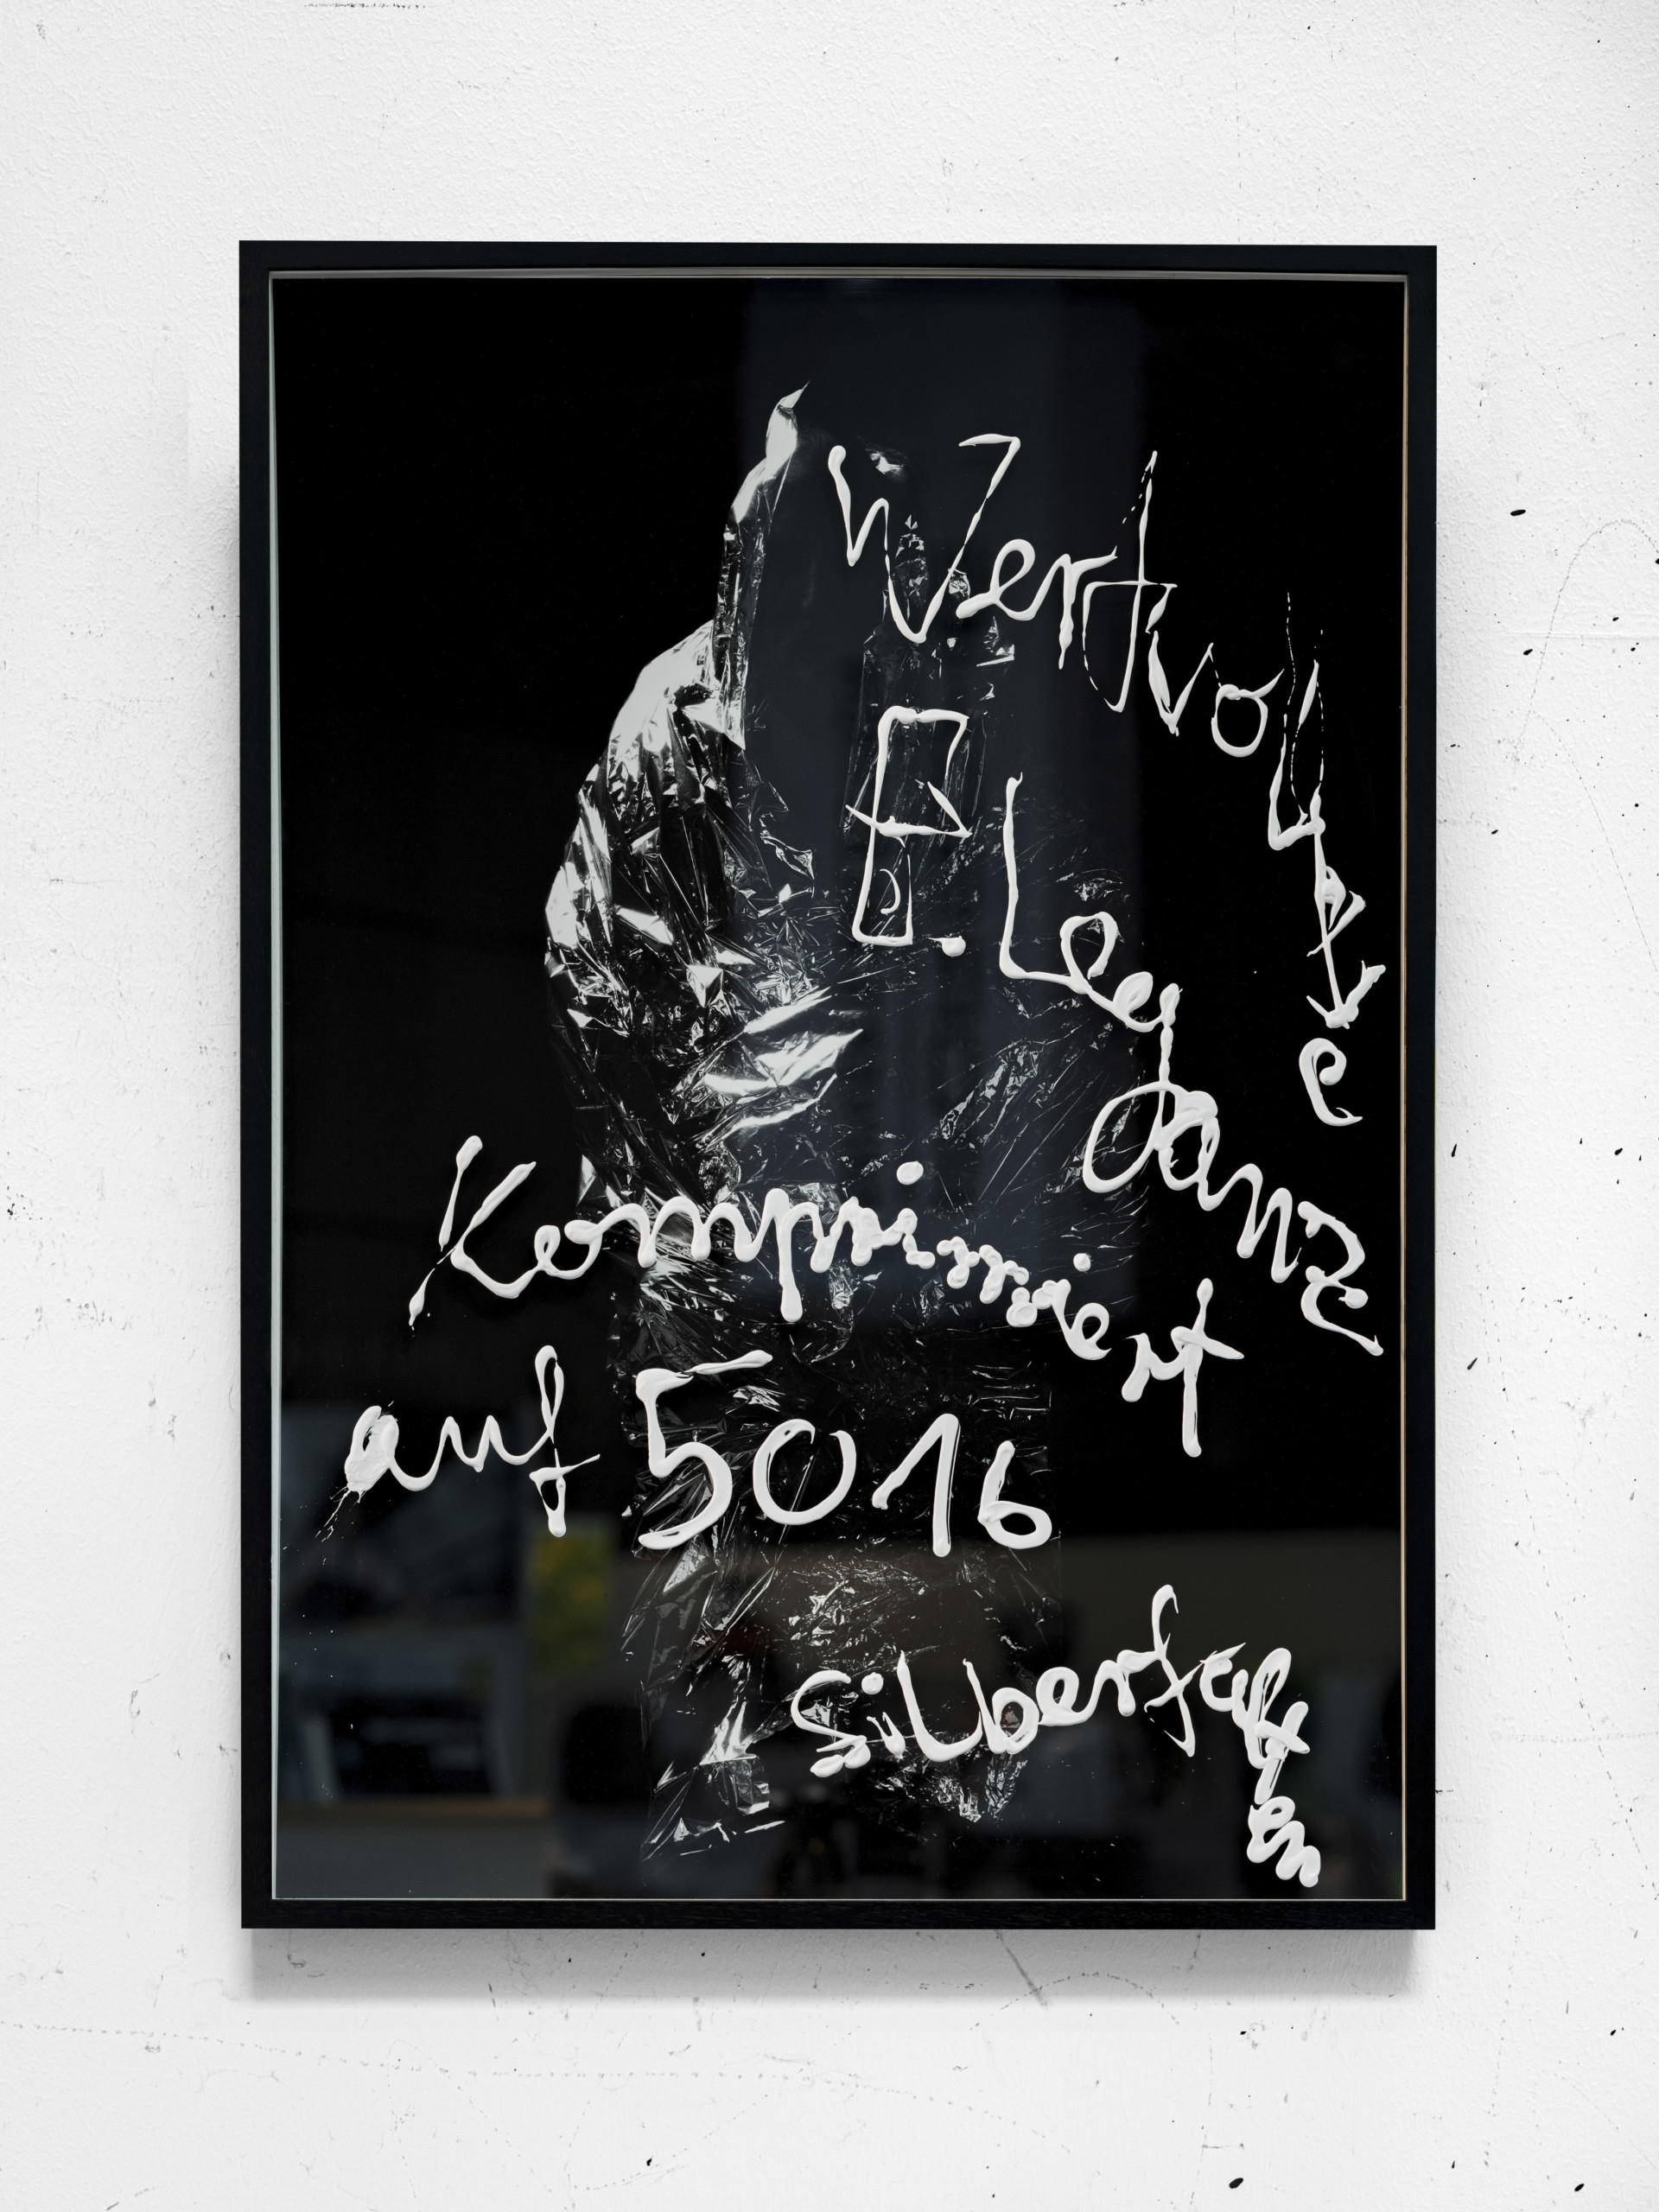 Wertvollste
E. Leganz
Komprimiert
auf 5016
Silberfalten